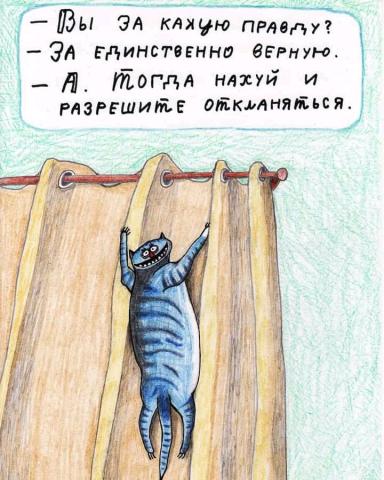 — Вы за какую правду?
— За единственно верную.
— А. Тогда нахуй и
разрешите откланяться.